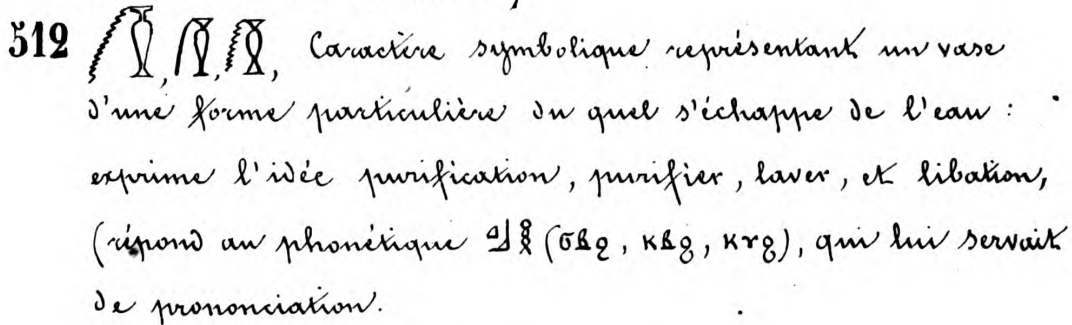 512 𓃂, 𓃂, 𓃂, Caractère symbolique représentant un vase
d'une forme particulière du quel s'échappe de l'eau :
exprime l'idée purification, purifier, laver, et libation,
(répond au phonétique 𓈎𓃀𓎛 (ϭⲃϩ, ⲕⲃϩ, ⲕⲩϩ), qui lui servait
de prononciation.